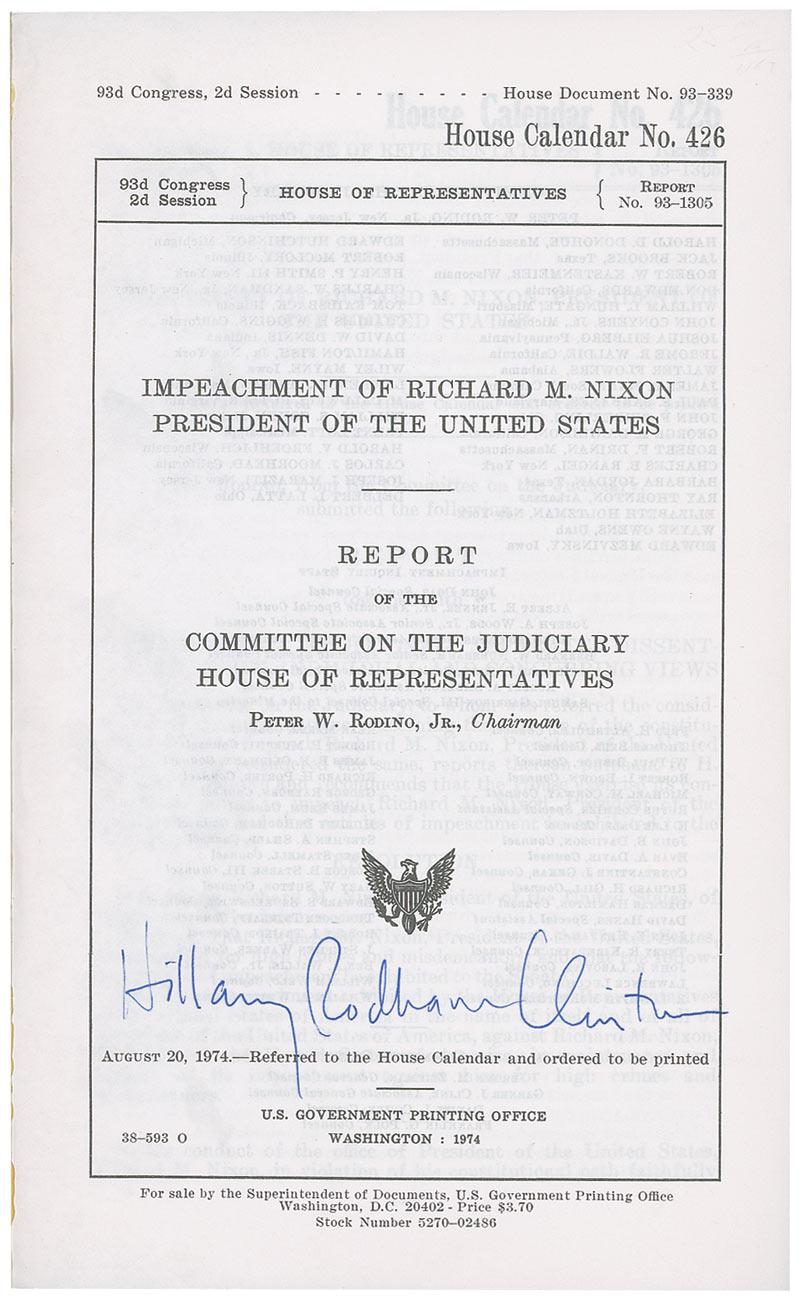 93d Congress, 2d Session - - - - - - - - - House Document No. 93–339
House Calendar No. 426
93d Congress
2d Session } HOUSE OF REPRESENTATIVES { REPORT
No. 93-1305
IMPEACHMENT OF RICHARD M. NIXON
PRESIDENT OF THE UNITED STATES
REPORT
OF THE
COMMITTEE ON THE JUDICIARY
HOUSE OF REPRESENTATIVES
PETER W. RODINO, JR., Chairman
Hillary Rodham Clinton
AUGUST 20, 1974.—Referred to the House Calendar and ordered to be printed
U.S. GOVERNMENT PRINTING OFFICE
38-593 O WASHINGTON : 1974
For sale by the Superintendent of Documents, U.S. Government Printing Office
Washington, D.C. 20402 - Price $3.70
Stock Number 5270-02486